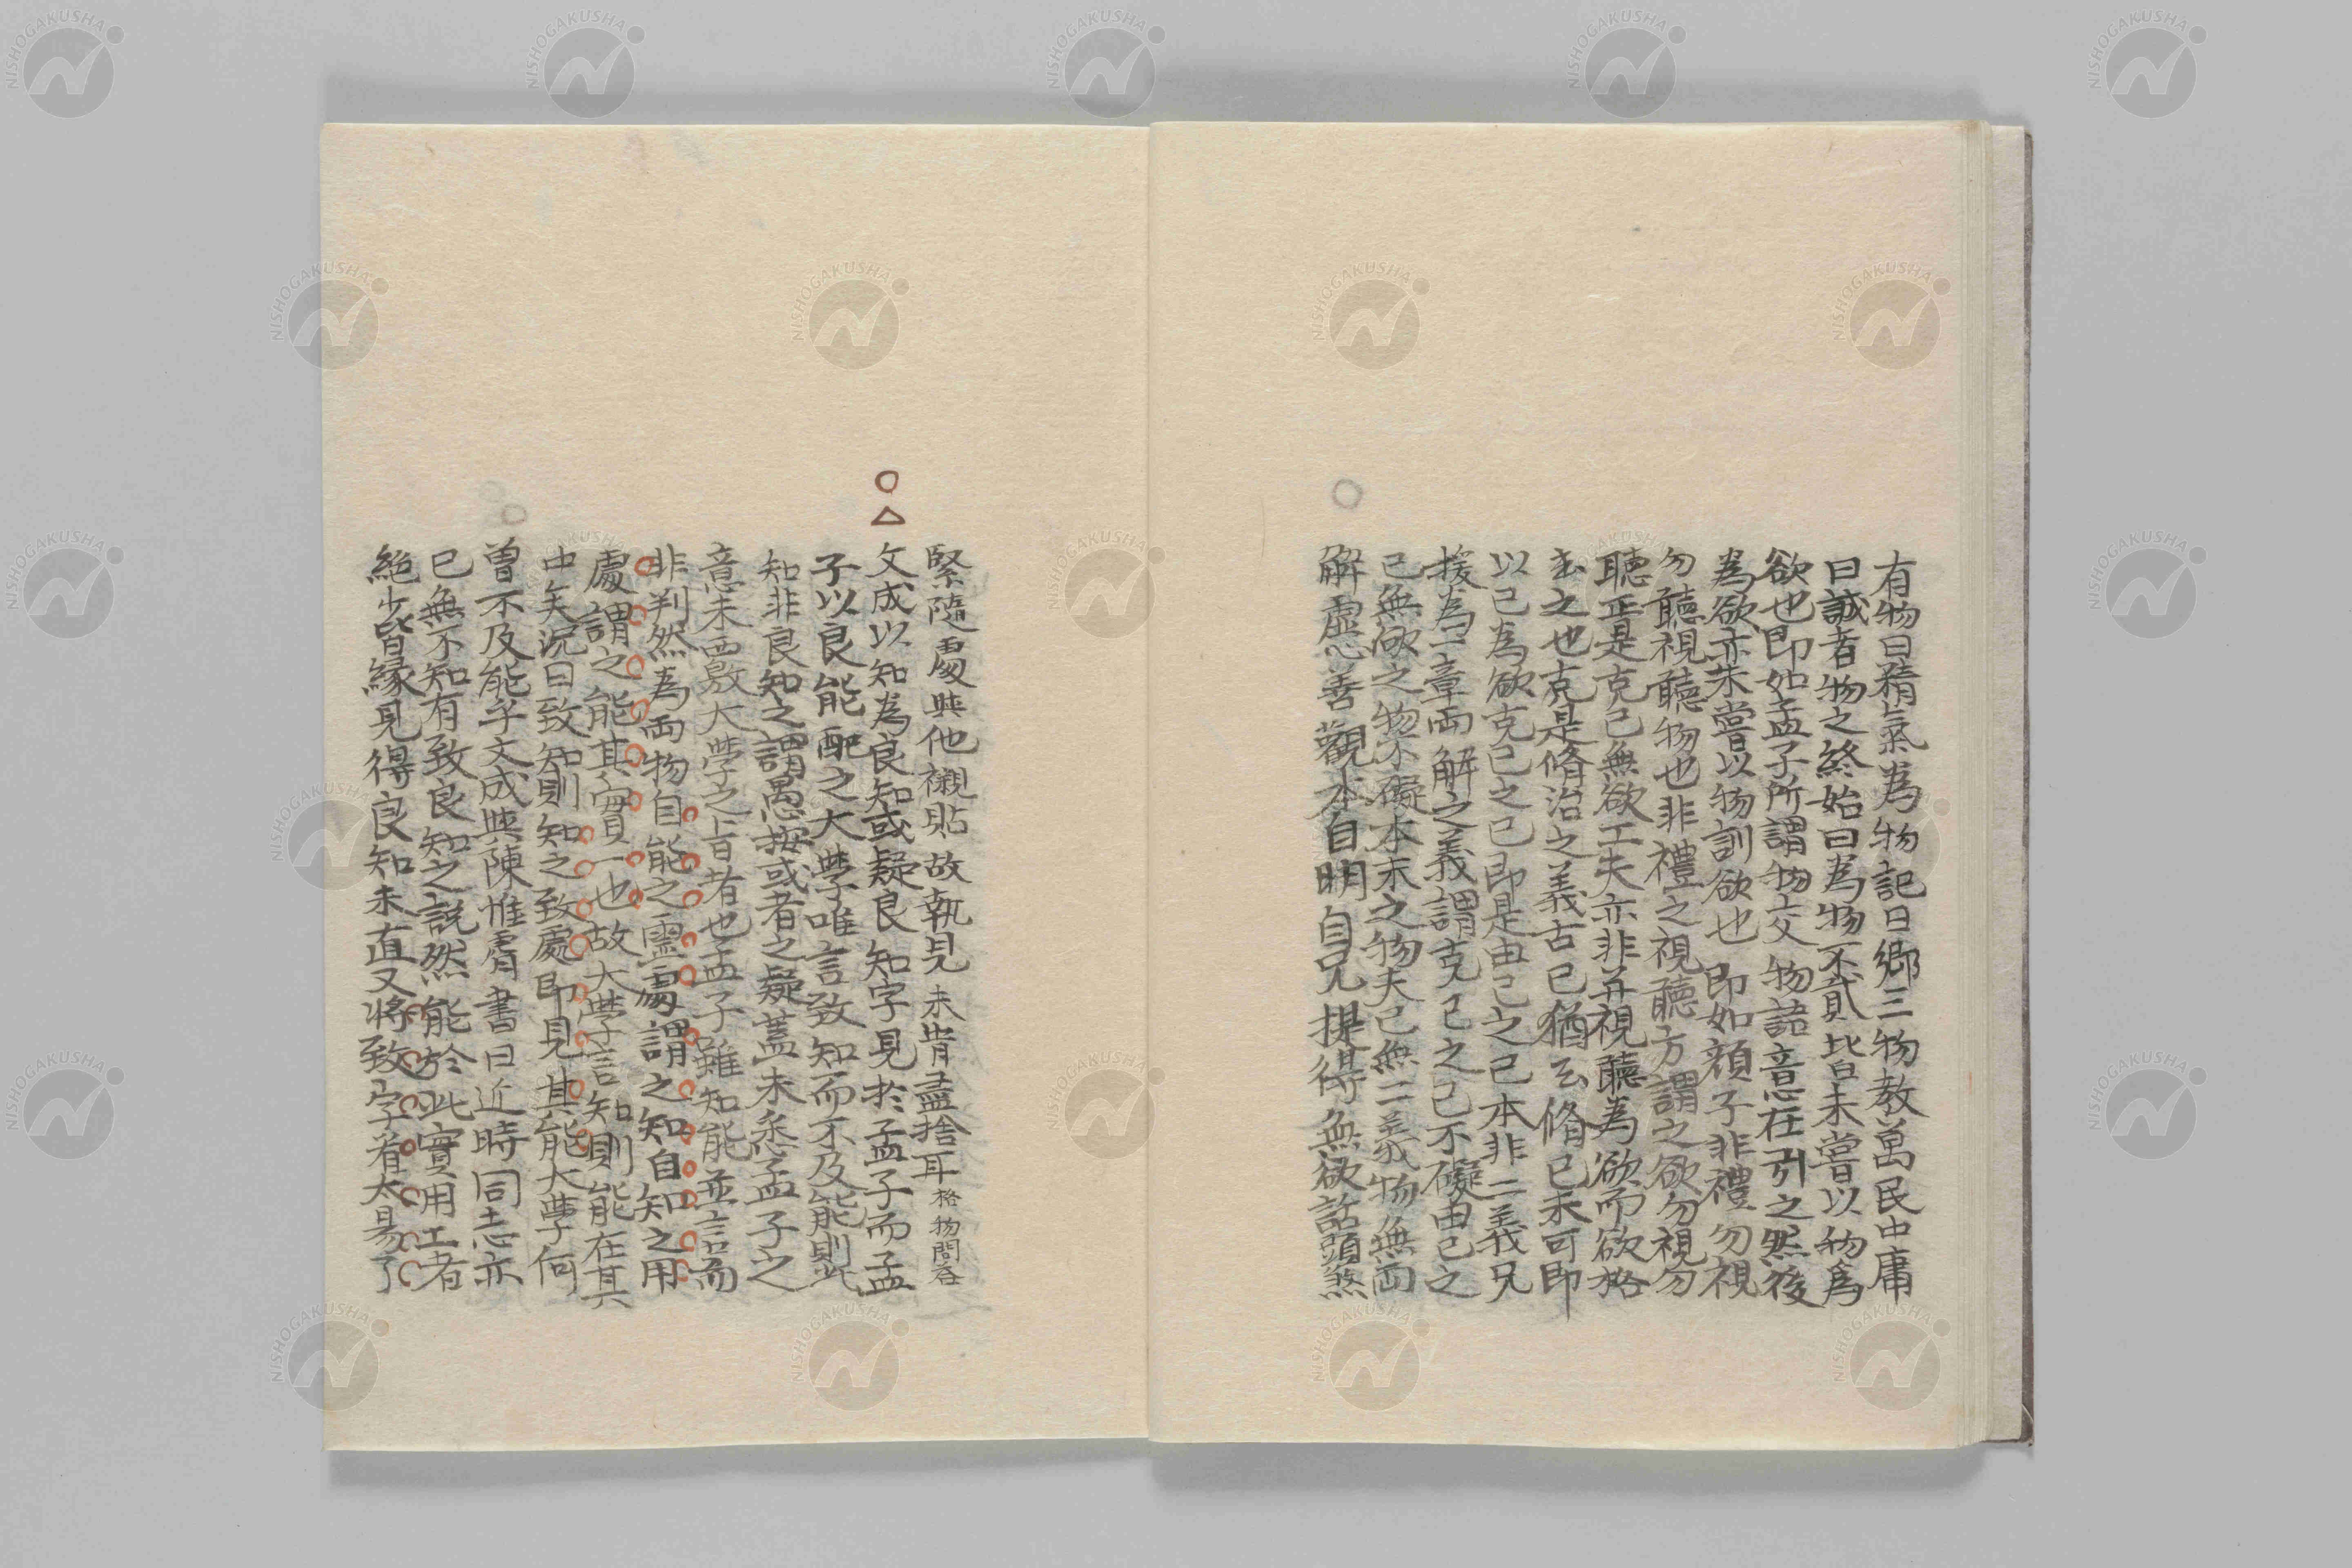 有物曰精氣為物記曰鄉三物教萬民中庸
曰誠者物之終始曰為物不貳皆未嘗以物為
欲也即如孟子所謂物交物語意在引之然後
為欲亦未嘗以物訓欲也即如顏子非禮勿視
勿聽視聽物也非禮之視聽方謂之欲勿視勿
聽正是克己無欲工夫亦非并視聽為欲而欲格
去之也克是脩治之義古已猶云脩己未可即
以己為欲克己之己即是由己之己本非二義兄
援為一章兩解之義謂克己之己不礙由己之
己無欲之物不礙本末之物夫己無二義物無兩
解虛心善觀本自明白兄提得無欲話頭煞
緊隨處與他襯貼故執見未肯盡捨耳格物問答
文成以知為良知或疑良知字見於孟子而孟
子以良能配之大學唯言致知而不及能則此
知非良知之謂愚按或者之疑蓋未悉孟子之
意未西敫大學之旨者也孟子雖知能並言而
非判然為兩物自能之靈處謂之知自知之用
處謂之能其實一也故大學言知則能在其
中矣況曰致知則知之致處即見其能大學何
曾不及能乎文成與陳惟濬書曰近時同志亦
已無不知有致良知之説然能於此實用工者
絕少皆緣見得良知未真又將致字看太易了
NISHOGAKUSHA